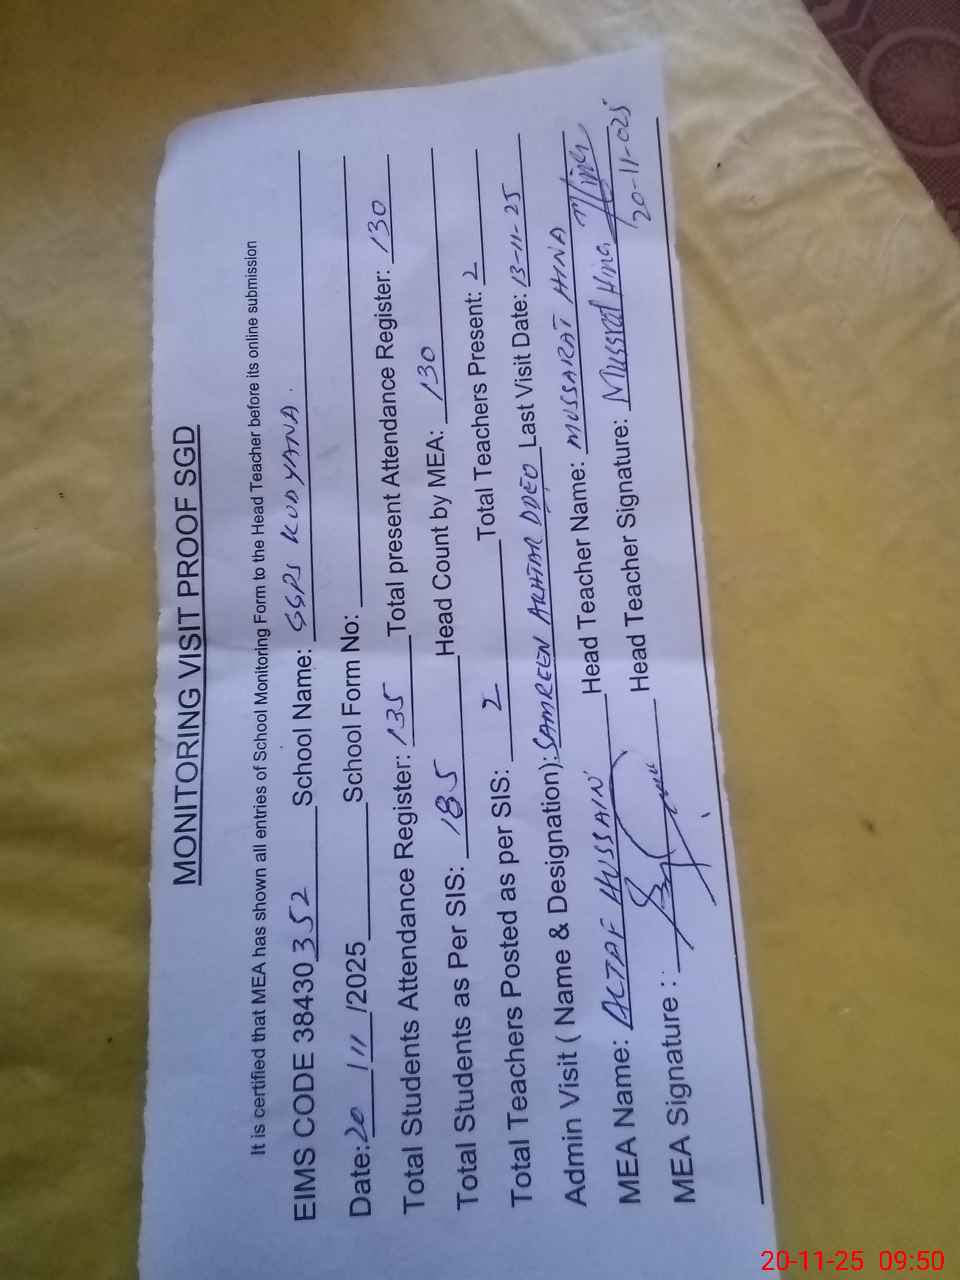 MONITORING VISIT PROOF SGD
It is certified that MEA has shown all entries of School Monitoring Form to the Head Teacher before its online submission
EIMS CODE 38430352 School Name: GGPS KUDYANA.
Date: 20/11/2025 School Form No:
Total Students Attendance Register: 135 Total present Attendance Register: 130
Total Students as Per SIS: 185 Head Count by MEA: 130
Total Teachers Posted as per SIS: 2 Total Teachers Present: 2
Admin Visit ( Name & Designation): SAMREEN AKHTAR DDEO Last Visit Date: 13-11-25
MEA Name: ALTAF HUSSAIN Head Teacher Name: MUSSARAT HINA
MEA Signature : Head Teacher Signature: Mussrat Hina
20-11-025
20-11-25 09:50